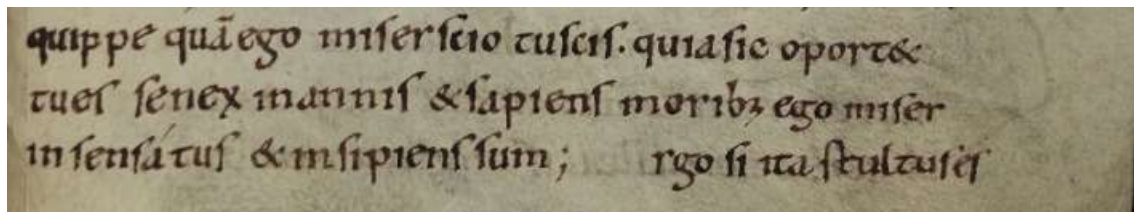 quippe quā ego miser scio tu scis. quia sic oport&
tu es senex in annis & sapiens morib; ego miser
insensatus & insipiens sum; rgo si ita stultus es